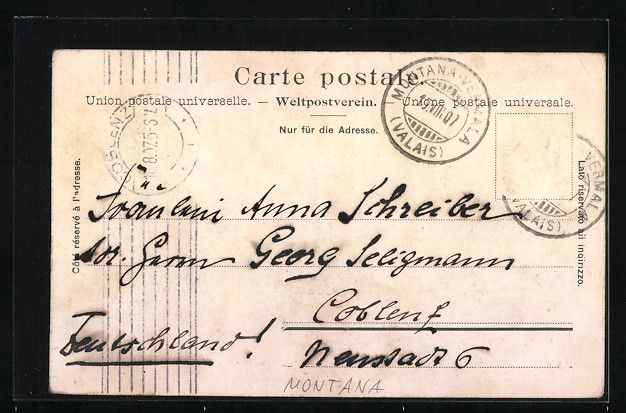 Carte postale.
Union postale universelle. — Weltpostverein. — Unione postale universale.
Nur für die Adresse.
Côté réservé à l'adresse.
Lato riservato all indirizzo.
MONTANA-VERMALA
19.VIII.07
(VALAIS)
VERMALA
(VALAIS)
Fräulein Anna Schreiber
Herrn Georg Seligmann
Coblenz
Deutschland!
Neustadt 6
MONTANA